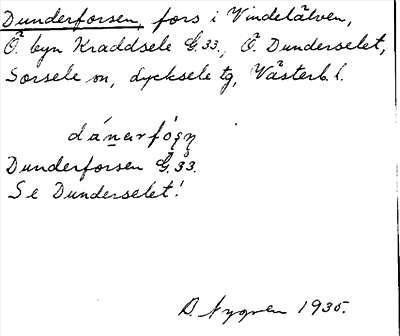 Dunderforsen, fors i Vindelälven,
Ö. byn Kraddsele G.33., Ö. Dunderselet,
Sorsele sn, Lycksele tg, Västerb. l.
Dunderforsen G.33.
Se Dunderselet!
D. Nygren 1935.